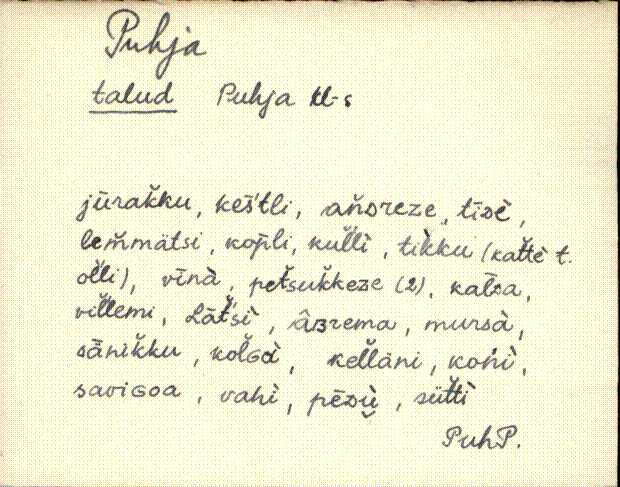 Puhja
talud Puhja kl-s
jūrak̆ku, keś̆tli, an̆Dreze, tīsè,
lem̆mätsi, kop̆li, kul̆lì, tik̀ku (kat̆tè t.
ol̆li), vīnà, pet̆suk̆keze (2), kalsa,
vil̆lemi, Lät̆'sì, âʙrema, mursà,
sānik̆ku, kol̆Gà, kel̆läni, końì,
saviGoa, vahì, pēzù, süt̆tì
PuhP.